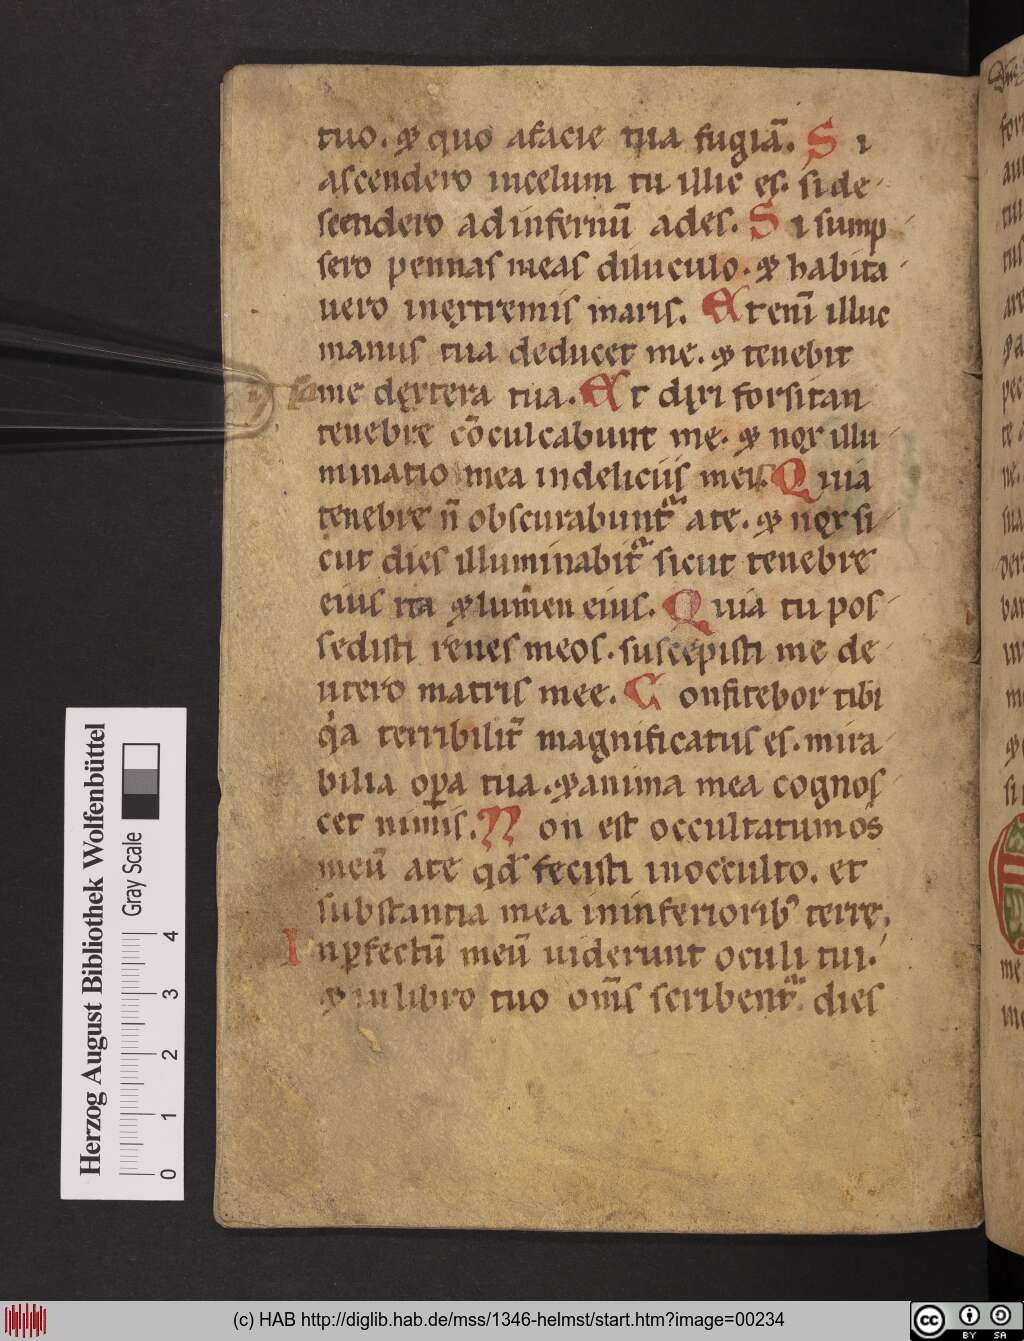 tuo. & quo afacie tua fugiā. Si
ascendero incelum tu illic es. si de
scendero ad infernū ades. Si sump
sero pennas meas diluculo. & habita
uero inextremis maris. Et enī illuc
manus tua deducet me. & tenebit
me dextera tua. Et dixi forsitan
tenebre cōculcabunt me. & nox illu
minatio mea indeliciis meis. Quia
tenebre ñ obscurabunt᷑ ate. & nox si
cut dies illuminabit᷑ sicut tenebre
eius ita & lumen eius. Quia tu pos
sedisti renes meos. suscepisti me de
utero matris mee. Confitebor tibi
qͥa terribilit̄ magnificatus es. mira
bilia oꝑa tua. & anima mea cognos
cet nimis. Non est occultatum os
meū ate qđ fecisti inocculto. et
substantia mea ininferioribꝰ terre.
Inꝑfectū meū uiderunt oculi tui.
& inlibro tuo om̄s scribent᷑ dies
Herzog August Bibliothek Wolfenbüttel
Gray Scale
0 1 2 3 4
(c) HAB http://diglib.hab.de/mss/1346-helmst/start.htm?image=00234
cc BY SA